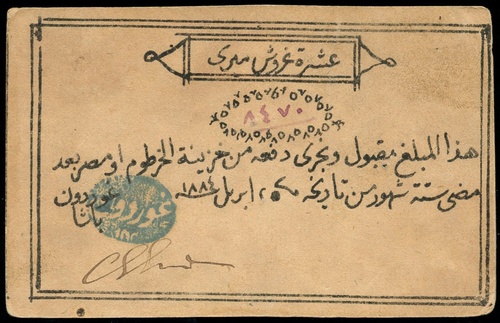 عشرة غروش ميرى
٨٤٧٠
هذا المبلغ مقبول ويجرى دفعه من خزينة الخرطوم او مصر بعد
مضى ستة شهور من تاريخه ٢٥ ابريل ١٨٨٤ غوردون
باشا